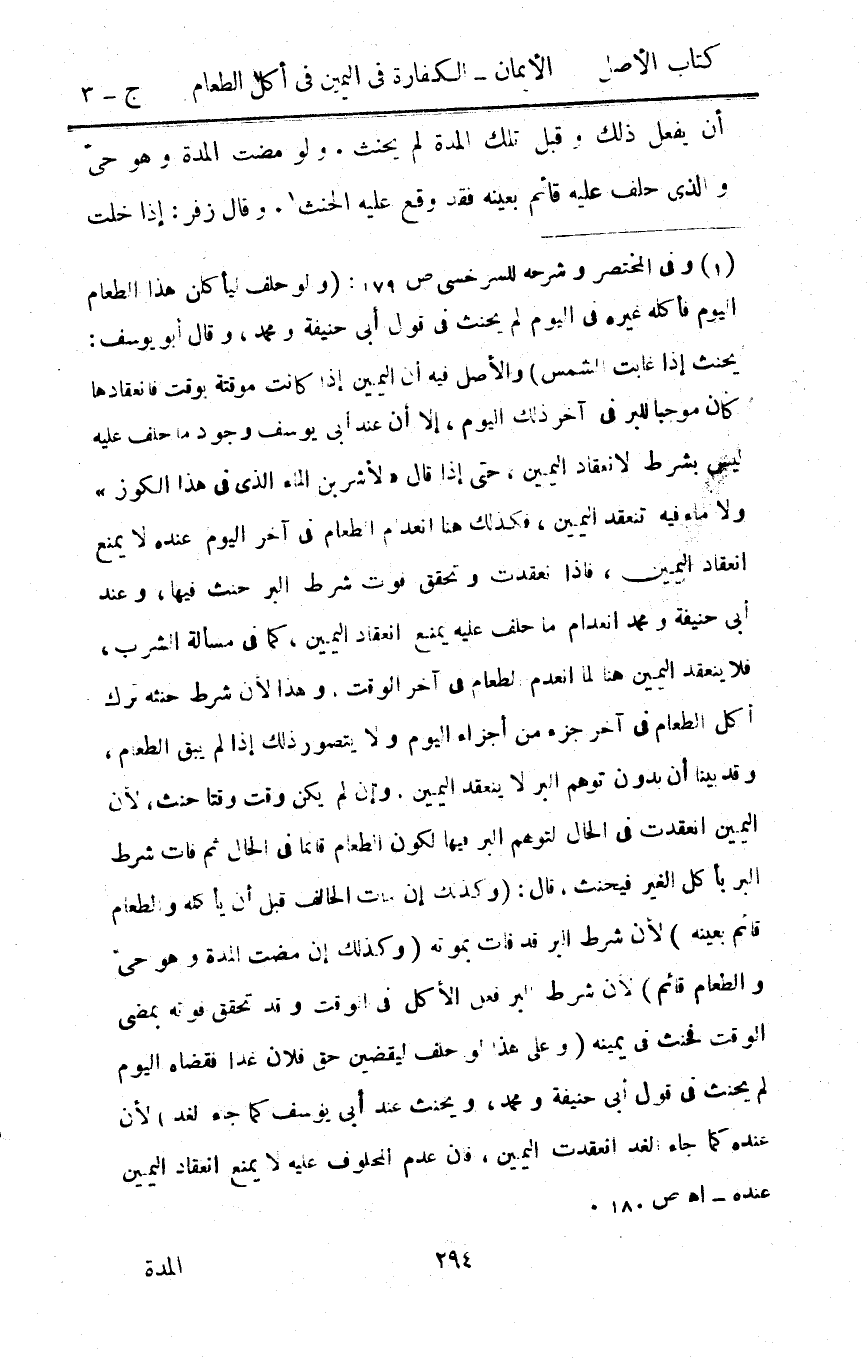 كتاب الأصل الأيمان ــ الكفارة فى اليمين فى أكل الطعام ج ــ ٣
أن يفعل ذلك و قبل تلك المدة لم يحنث . و لو مضت المدة و هو حىّ
و الذى حلف عليه قائم بعينه فقد وقع عليه الحنث١ . و قال زفر : إذا خلت
(١) و فى المختصر و شرحه للسرخسى ص ١٧٩ : (و لو حلف ليأكلن هذا الطعام
اليوم فأكله غيره فى اليوم لم يحنث فى قول أبى حنيفة و محمد ، و قال أبو يوسف :
يحنث إذا غابت الشمس) والأصل فيه أن اليمين إذا كانت موقتة بوقت فانعقادها
كان موجبا للبر فى آخر ذلك اليوم ، إلا أن عند أبى يوسف وجود ما حلف عليه
ليس بشرط لانعقاد اليمين ، حتى إذا قال « لأشربن الماء الذى فى هذا الكوز »
ولا ماء فيه تنعقد اليمين ، فكذلك هنا انعدام الطعام فى آخر اليوم عنده لا يمنع
انعقاد اليمين ، فاذا نعقدت و تحقق فوت شرط البر حنث فيها ، و عند
أبى حنيفة و محمد انعدام ما حلف عليه يمنع انعقاد اليمين ، كما فى مسألة الشرب ،
فلا ينعقد اليمين هنا لما انعدم الطعام فى آخر الوقت . و هذا لأن شرط حنثه ترك
أكل الطعام فى آخر جزء من أجزاء اليوم و لا يتصور ذلك إذا لم يبق الطعام ،
و قد بينا أن بدون توهم البر لا ينعقد اليمين . وإن لم يكن وقت وقتا حنث ، لأن
اليمين انعقدت فى الحال لتوهم البر فيها لكون الطعام قائما فى الحال ثم فات شرط
البر بأكل الغير فيحنث . قال : (و كذلك إن مات الحالف قبل أن يأكله و الطعام
قائم بعينه ) لأن شرط البر قد فات بموته ( و كذلك إن مضت المدة و هو حىّ
و الطعام قائم ) لأن شرط البر فعل الأكل فى الوقت و قد تحقق فوته بمضى
الوقت فحنث فى يمينه ( و على هذا لو حلف ليقضين حق فلان غدا فقضاه اليوم
لم يحنث فى قول أبى حنيفة و محمد ، و يحنث عند أبى يوسف كما جاء الغد ) لأن
عنده كما جاء الغد انعقدت اليمين ، فان عدم المحلوف عليه لا يمنع انعقاد اليمين
عنده ــ اه ص ١٨٠ .
٢٩٤ المدة